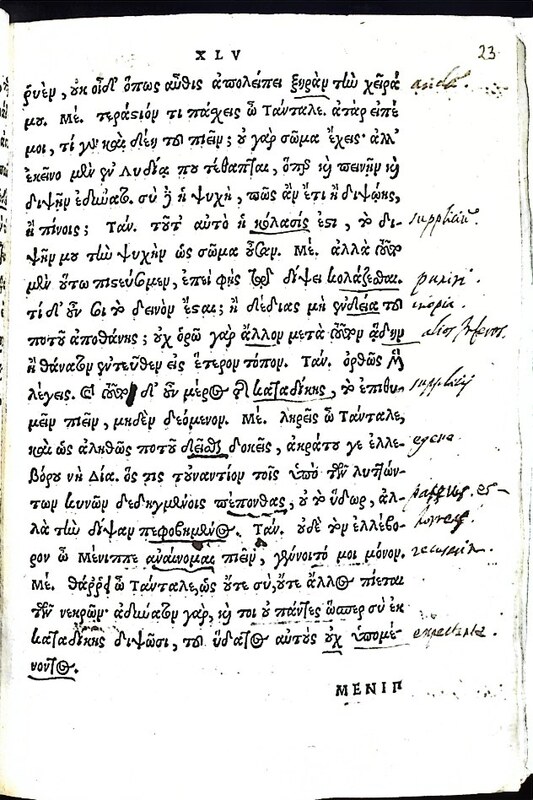 XLV 23
ῥυὲν, οὐκ οἶδ' ὅπως αὖθις ἀπολείπει ξηρὰν τὴν χεῖρά
μου. Μέ. τεράστιόν τι πάσχεις ὦ Τάνταλε. ἀτὰρ εἰπέ
μοι, τί γὰρ καὶ δέῃ τοῦ πιεῖν; οὐ γὰρ σῶμα ἔχεις· ἀλλ'
ἐκεῖνο μὲν ἐν Λυδίᾳ που τέθαπται, ὅπερ καὶ πεινῆν καὶ
διψῆν ἐδύνατο. σὺ δὲ ἡ ψυχὴ, πῶς ἂν ἔτι ἢ διψῴης,
ἢ πίνοις; Ταν. τοῦτ' αὐτὸ ἡ κόλασίς ἐστι, τὸ δι-
ψῆν μου τὴν ψυχὴν ὡς σῶμα οὖσαν. Μέ. ἀλλὰ τοῦτο
μὲν οὕτω πιστεύσωμεν, ἐπεὶ φῂς τῷ δίψει κολάζεσθαι.
τί δ' οὖν σοι τὸ δεινὸν ἔσται; ἢ δέδιας μὴ ἐνδείᾳ τοῦ
ποτοῦ ἀποθάνῃς; οὐχ ὁρῶ γὰρ ἄλλον μετὰ τοῦτον ᾅδην
ἢ θάνατον ἐντεῦθεν εἰς ἕτερον τόπον. Ταν. ὀρθῶς μὲν
λέγεις. καὶ τοῦτο δ' οὖν μέρος τῆς καταδίκης, τὸ ἐπιθυ-
μεῖν πιεῖν, μηδὲν δεόμενον. Μέ. ληρεῖς ὦ Τάνταλε,
καὶ ὡς ἀληθῶς ποτοῦ δεῖσθαι δοκεῖς, ἀκράτου γε ἑλλε-
βόρου νὴ Δία. ὅστις τοὐναντίον τοῖς ὑπὸ τῶν λυττών-
των κυνῶν δεδηγμένοις πέπονθας, οὐ τὸ ὕδωρ, ἀλ-
λὰ τὴν δίψαν πεφοβημένος. Ταν. οὐδὲ τὸν ἑλλέβο-
ρον ὦ Μένιππε ἀναίνομαι πιεῖν, γένοιτό μοι μόνον.
Μέ. θάρρει ὦ Τάνταλε, ὡς οὔτε σὺ, οὔτε ἄλλος πίεται
τῶν νεκρῶν· ἀδύνατον γὰρ, καί τοι οὐ πάντες ὥσπερ σὺ ἐκ
καταδίκης διψῶσι, τοῦ ὕδατος αὐτοὺς οὐχ ὑπομέ-
νοντος.
ΜΕΝΙΠ
supplicium.
puniri.
inopia.
supplicij
egere
passus es